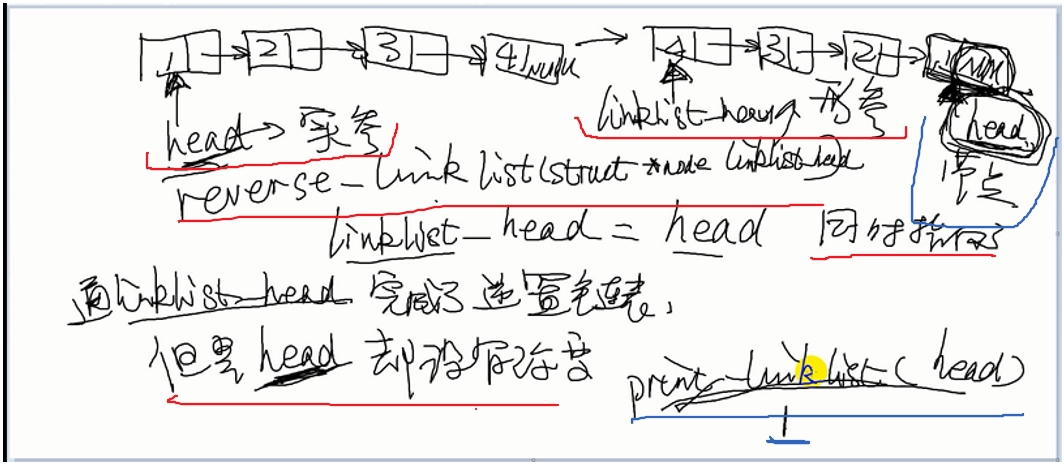 1 2 3 4 NULL → 4 3 2 1 NULL
head → 实参 linklist_head 形参 head
节点
reverse_link list(struct *node linklist_head
linklist_head = head 同时指向
通linklist_head 完成了逆置链表,
但是 head 却没有改变
print_linklist(head)
1